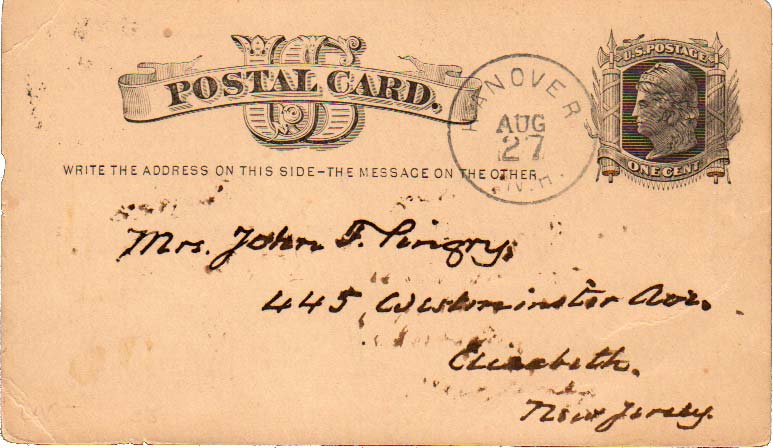 US
POSTAL CARD.
U.S. POSTAGE
ONE CENT
HANOVER
AUG
27
N.H.
WRITE THE ADDRESS ON THIS SIDE–THE MESSAGE ON THE OTHER
Mrs. John F. Pingry,
445 Westminster Ave.
Elizabeth.
New Jersey.